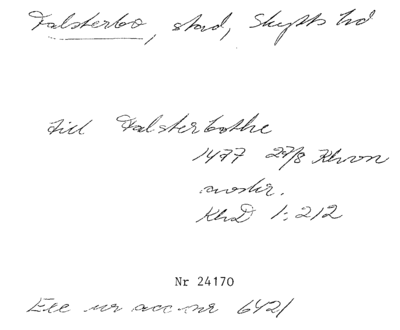 Falsterbo, stad, Skytts hd
till Falsterbothe
1477 27/8 Khvon
avskr.
KhD 1:212
Nr 24170
Exc ur acc.nr 6421